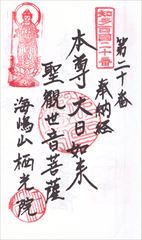 第二十番
奉納経
知多四国二十番
本尊大日如来
聖観世音菩薩
海嶋山栖光院